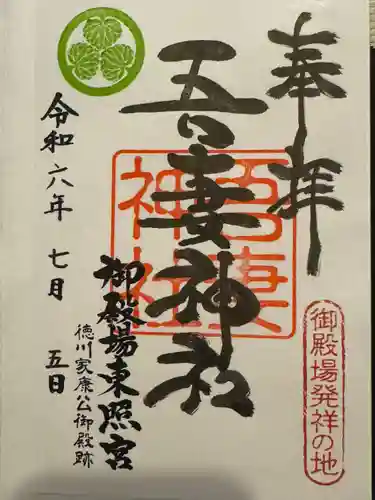 奉拝
御殿場発祥の地
吾妻神社
吾妻
神社
御殿場東照宮
徳川家康公御殿跡
令和六年七月五日